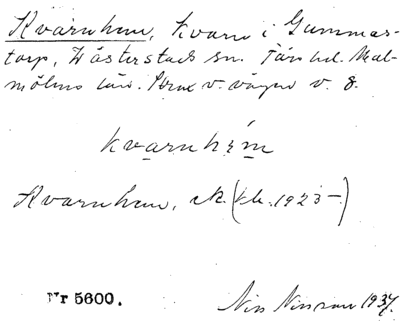 Kvarnhem, kvarn i Gummas-
torp, Västerstads sn. Färs hd. Mal-
möhus län. Strax v. vägen v. 8.
kvarnhęm
Kvarnhem, ek. (kb. 1923-)
Nr 5600.
Nils Nilsson 1937.